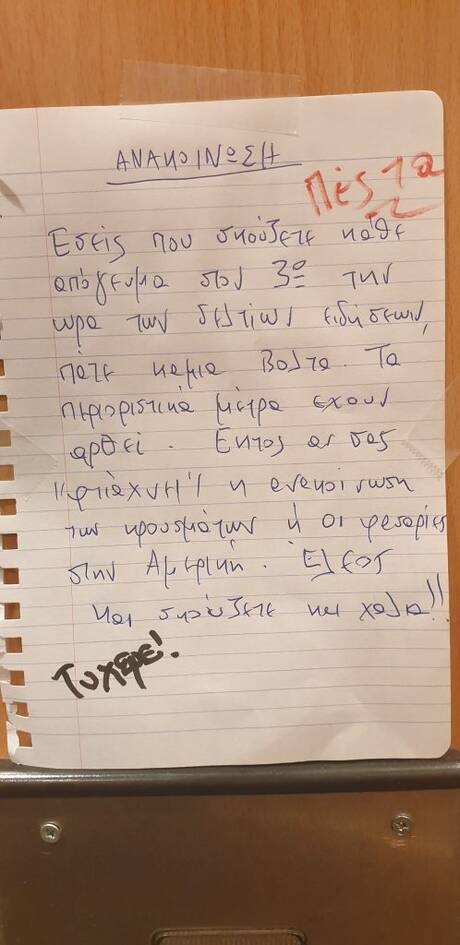 ΑΝΑΚΟΙΝΩΣΗ
Πες τα
Εσείς που σκούζετε κάθε
απόγευμα στον 3ο την
ωρα των δελτίων ειδήσεων,
πάτε καμια βολτα. Τα
περιοριστικά μέτρα εχουν
αρθεί. Εκτος αν σας
"φτιάχνει" η ανακοινωση
των κρουσμάτων ή οι φασαρίες
στην Αμερική. Έλεος
Και σκούζετε και χαλια!!
Τυχερε!